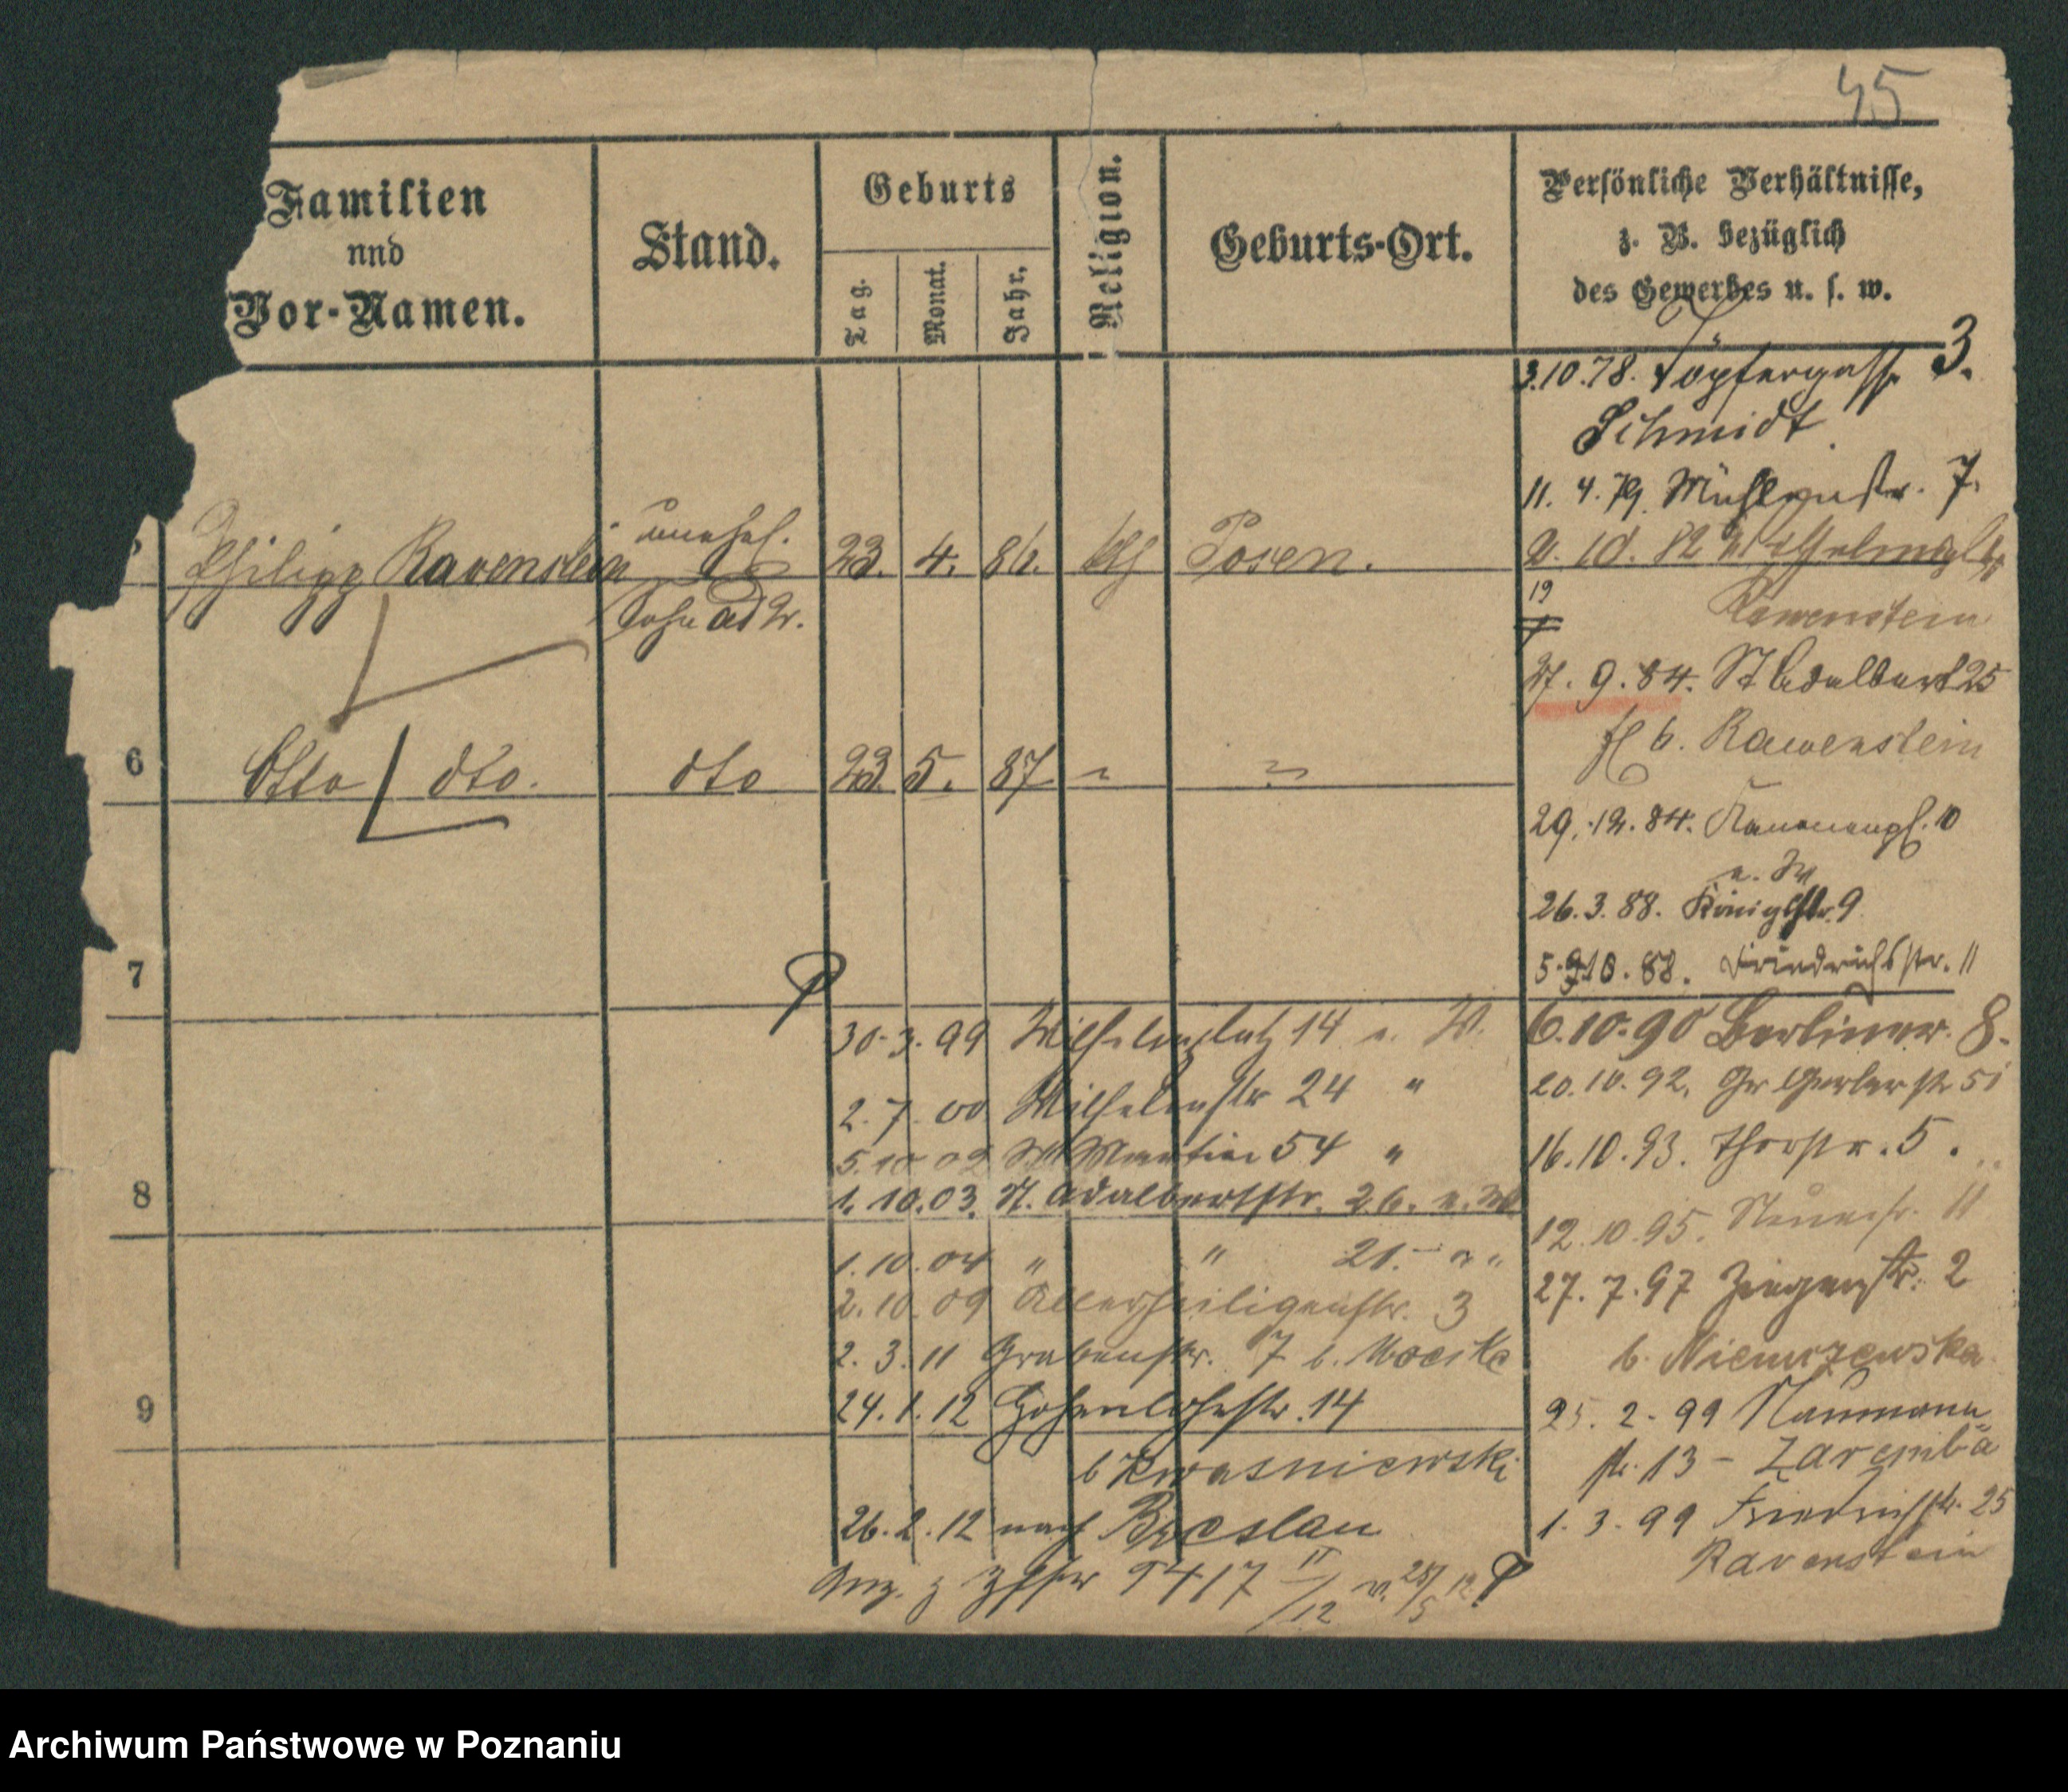 45
Familien
und
Vor-Namen.
Stand.
Geburts
Tag.
Monat.
Jahr.
Religion.
Geburts-Ort.
Persönliche Verhältnisse,
z. B. bezüglich
des Gewerbes u. s. w.
3.10.78. Töpfergasse 3.
Schmidt
11. 4. 79. Mühlenstr. 7.
Philipp Ravenstein
unehel.
Sohn ad 2.
23. 4. 86.
Posen.
2. 10. 82
19
Rawenstein
27. 9. 84. St Adalbert 25
b. Rawenstein
6
Otto dto.
dto
23. 5. 87
29. 12. 84. Kanonenpl. 10
26. 3. 88. Königstr. 9
7
5. 10. 88. Friedrichstr. 11
30. 3. 99 Wilhelmplatz 14 u. W.
6. 10. 90 Berliner. 8.
2. 7. 00 Wilhelmstr 24 "
20. 10. 92. Gr Gerberstr 51
5. 10 02 St Martin 54 "
16. 10. 93. Thorstr. 5.
8
1. 10. 03. St. Adalbertstr. 26.
12. 10. 95. 11
1. 10. 04 " " 21.
27. 7. 97 Ziegenstr. 2
2. 10. 09 Allerheiligenstr. 3
2. 3. 11 Grabenstr. 7 b.
b. Niemrzewska
9
24. 1. 12 Hohenlohestr. 14
25. 2. 99 Naumann
str. 13 – Zaremba
b Kwasniewski
26. 2. 12 nach Breslau
1. 3. 99 Friedrichstr. 25
Ravenstein
9417 11/12 v. 28/5 12.
Archiwum Państwowe w Poznaniu